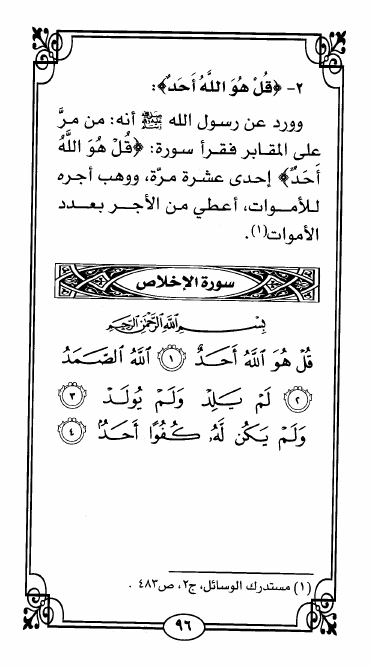 ٢- ﴿قُلْ هُوَ اللَّهُ أَحَدٌ﴾:
وورد عن رسول الله ﷺ أنه: من مرَّ
على المقابر فقرأ سورة: ﴿قُلْ هُوَ اللَّهُ
أَحَدٌ﴾ إحدى عشرة مرّة، ووهب أجره
للأموات، أعطي من الأجر بعدد
الأموات(١).
سورة الإخلاص
بِسْمِ اللَّهِ الرَّحْمَٰنِ الرَّحِيمِ
قُلْ هُوَ ٱللَّهُ أَحَدٌ ١ ٱللَّهُ ٱلصَّمَدُ
٢ لَمْ يَلِدْ وَلَمْ يُولَدْ ٣
وَلَمْ يَكُن لَّهُۥ كُفُوًا أَحَدٌۢ ٤
(١) مستدرك الوسائل، ج٢، ص٤٨٣ .
٩٦